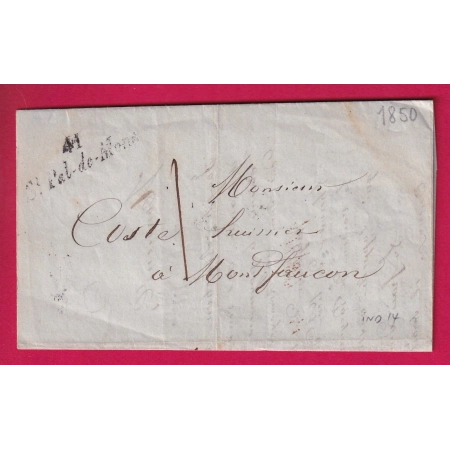 1850
41
St Pal-de-Mons
1
Monsieur
Coste huissier
à Montfaucon
IND 14